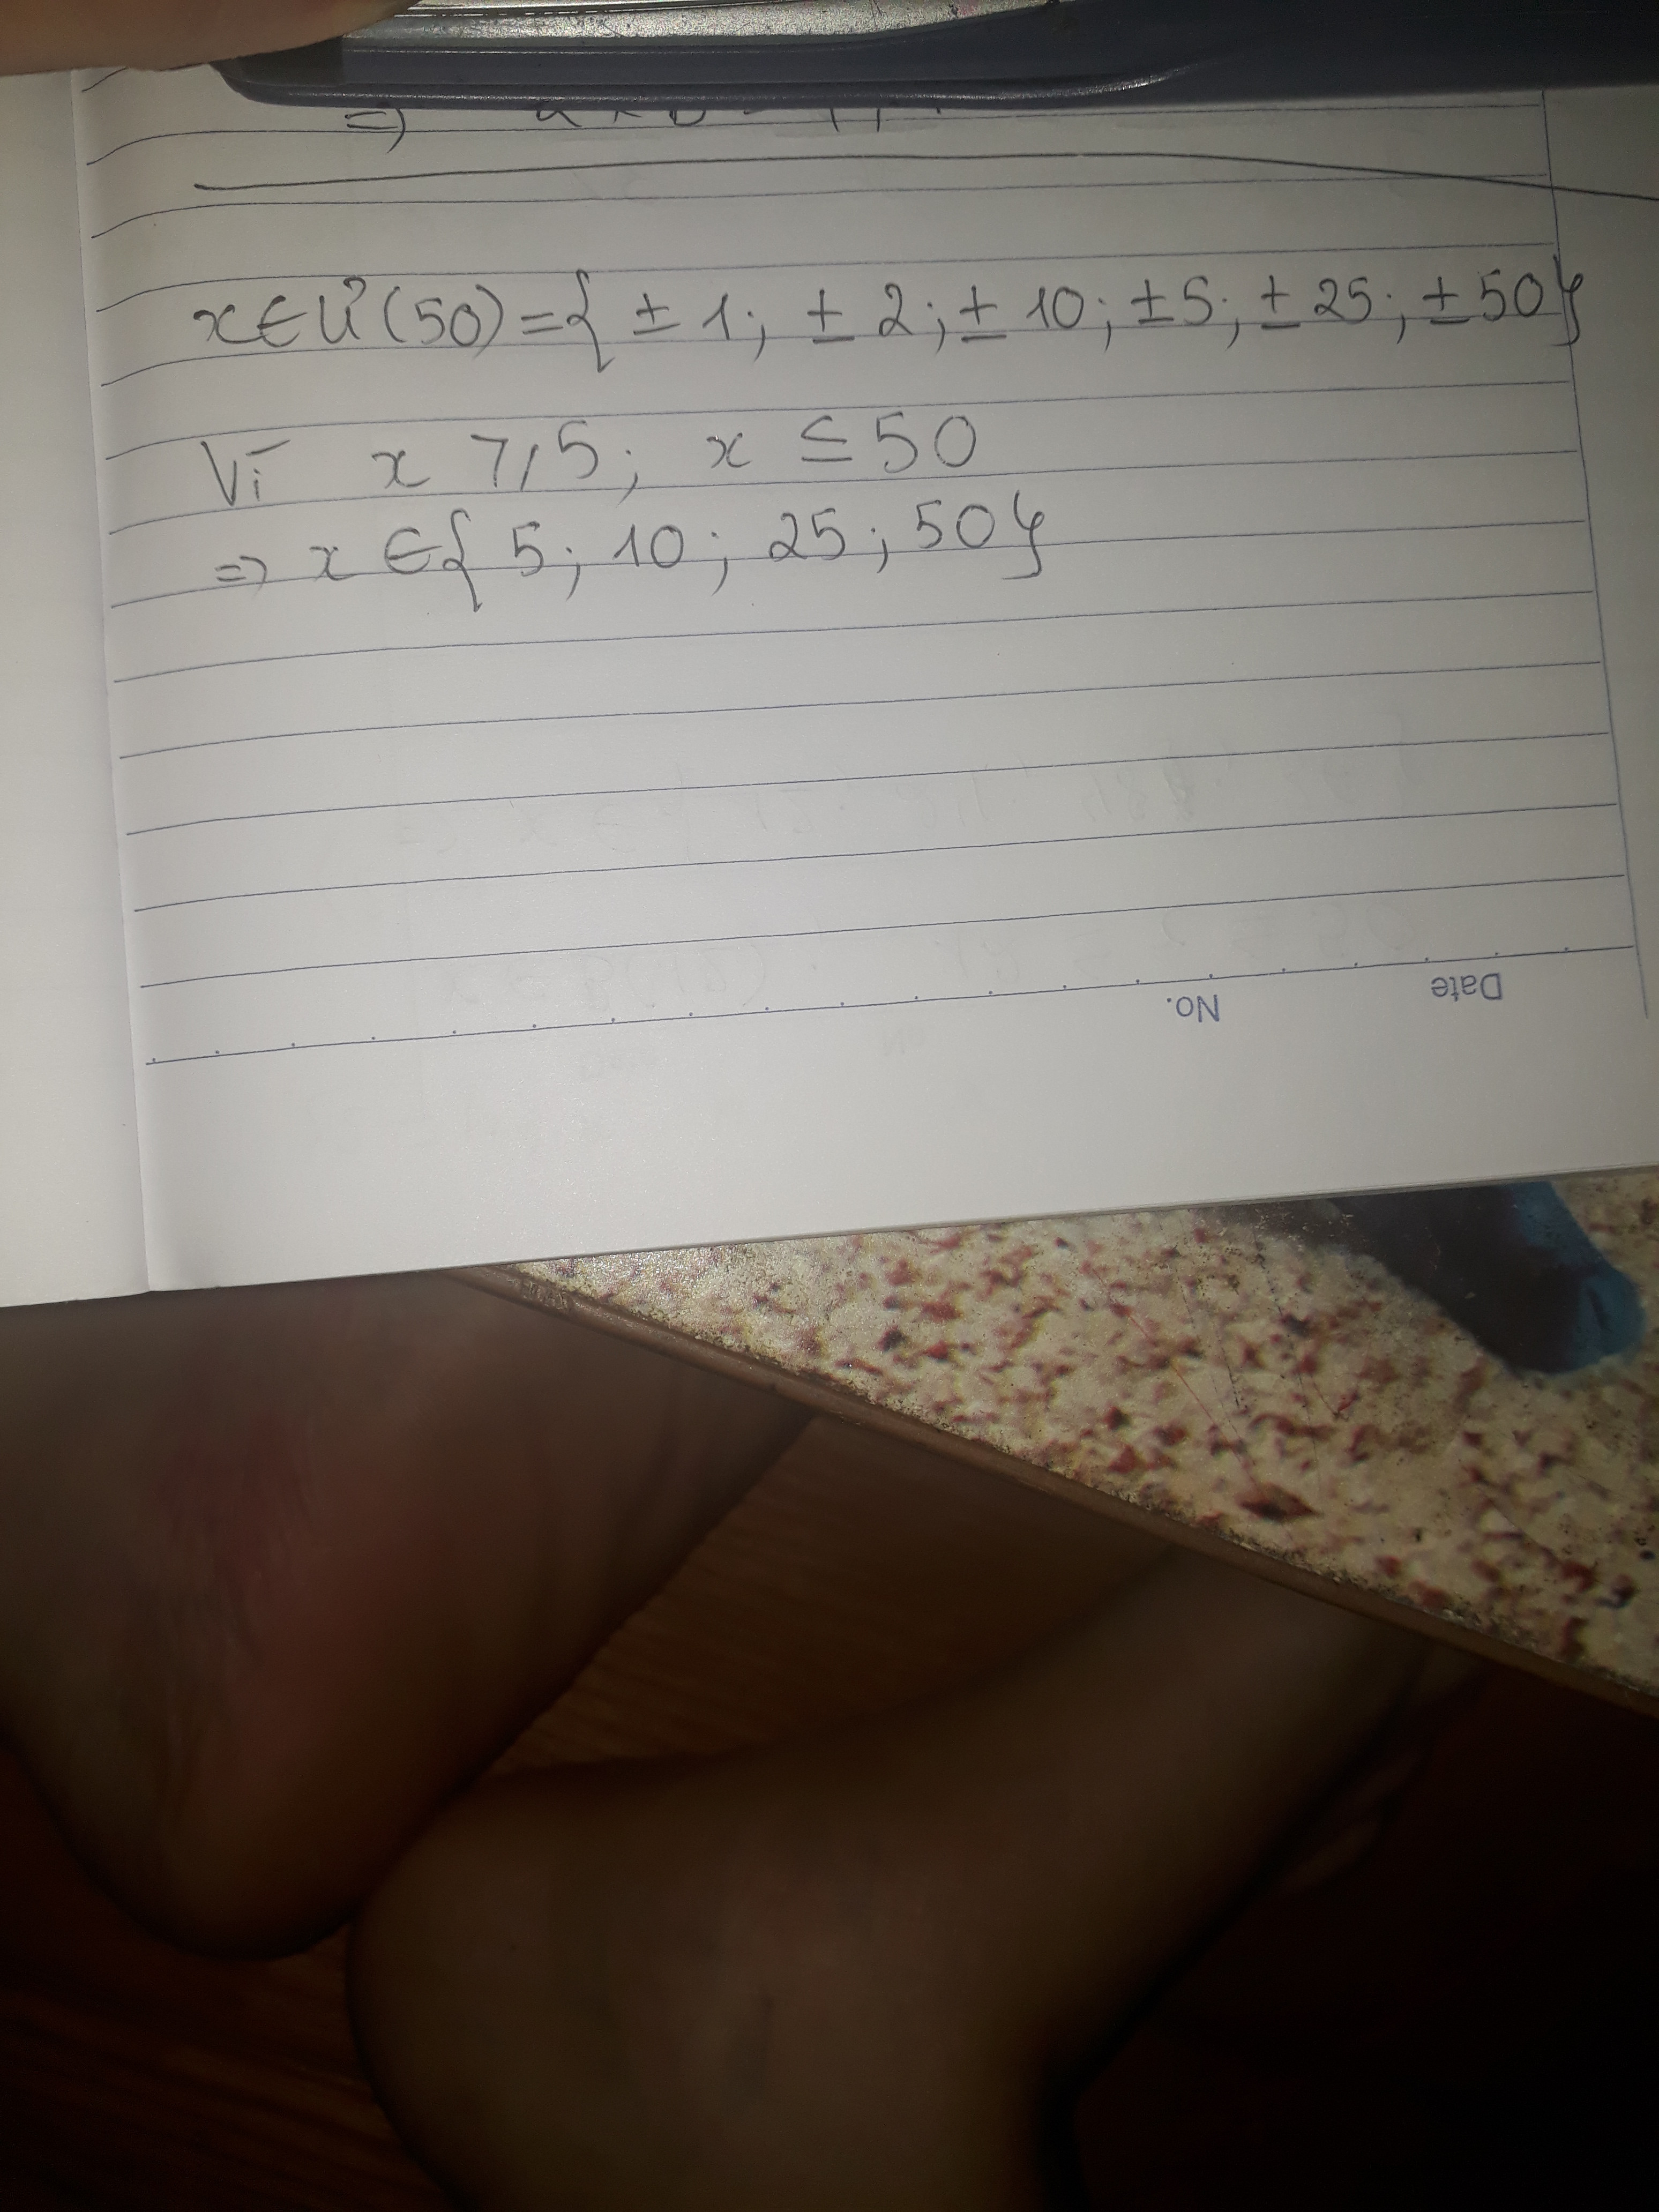 x ∈ Ư(50) = { ± 1; ± 2; ± 10; ± 5; ± 25; ± 50}
Vì x ⩾ 5; x ≤ 50
=> x ∈ { 5; 10; 25; 50}
No. Date